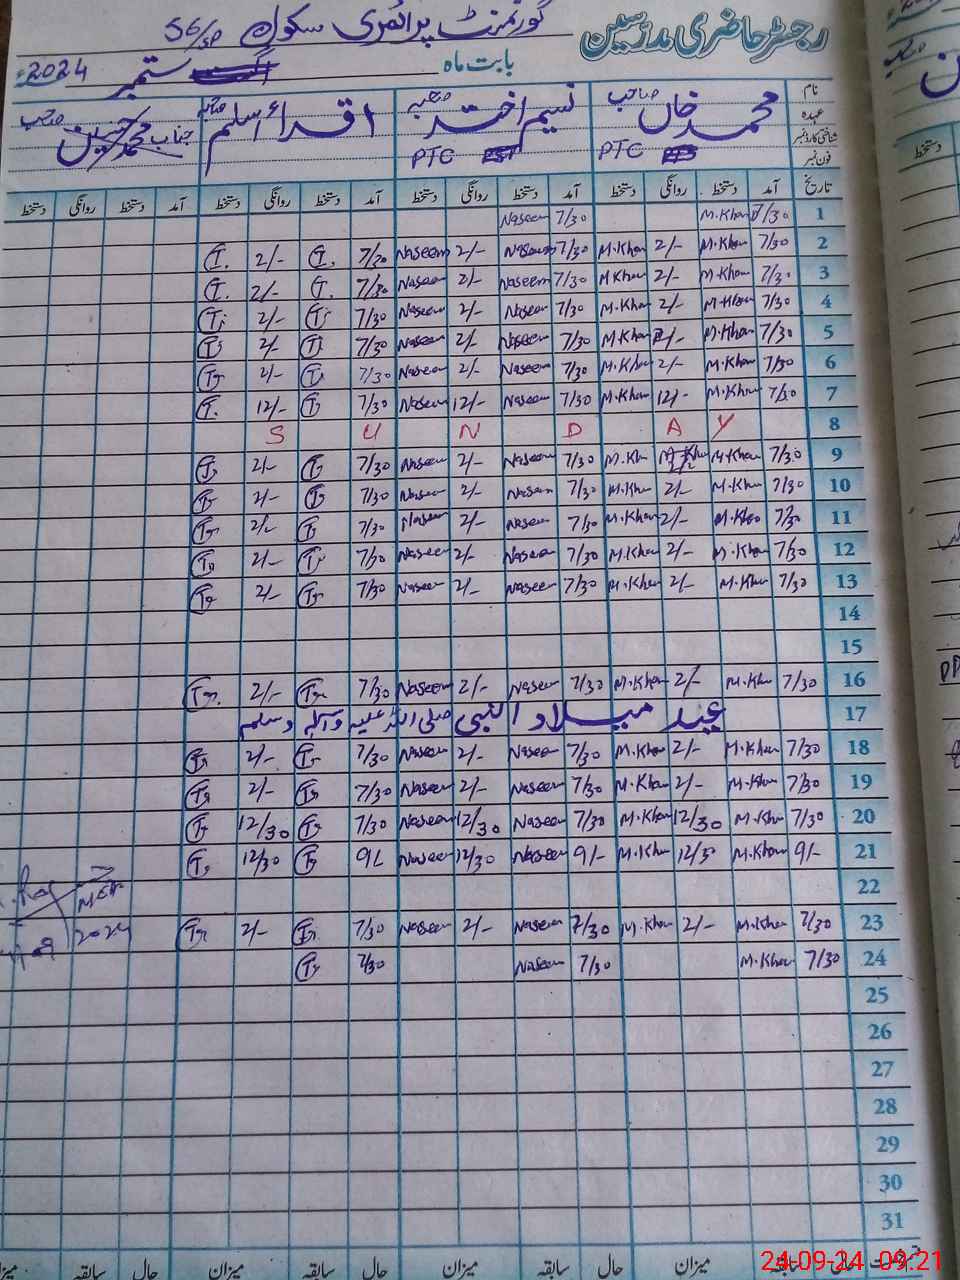 رجسٹر حاضری مدرسین گورنمنٹ پرائمری سکول 56/SP
بابت ماہ ستمبر 2024ء
نام محمد خان صاحب نسیم اختر صاحبہ اقراء اسلم صاحبہ جناب محمد حسین صاحب
عہدہ PTC PTC
شناختی کارڈ نمبر
فون نمبر
تاریخ آمد دستخط روانگی دستخط آمد دستخط روانگی دستخط آمد دستخط روانگی دستخط آمد دستخط روانگی دستخط
1 7/30 M.Khan 7/30 Naseem
2 7/30 M.Khan 2/- M.Khan 7/30 Naseem 2/- Naseem 7/30 2/-
3 7/30 M.Khan 2/- M.Khan 7/30 Naseem 2/- Naseem 7/30 2/-
4 7/30 M.Khan 2/- M.Khan 7/30 Naseem 2/- Naseem 7/30 2/-
5 7/30 M.Khan 2/- M.Khan 7/30 Naseem 2/- Naseem 7/30 2/-
6 7/30 M.Khan 2/- M.Khan 7/30 Naseem 2/- Naseem 7/30 2/-
7 7/30 M.Khan 12/- M.Khan 7/30 Naseem 12/- Naseem 7/30 12/-
8 S U N D A Y
9 7/30 M.Khan M.Kh 7/30 Naseem 2/- Naseem 7/30 2/-
10 7/30 M.Khan 2/- M.Khan 7/30 Naseem 2/- Naseem 7/30 2/-
11 7/30 M.Khan 2/- M.Khan 7/30 Naseem 2/- Naseem 7/30 2/-
12 7/30 M.Khan 2/- M.Khan 7/30 Naseem 2/- Naseem 7/30 2/-
13 7/30 M.Khan 2/- M.Khan 7/30 Naseem 2/- Naseem 7/30 2/-
14
15
16 7/30 M.Khan 2/- M.Khan 7/30 Naseem 2/- Naseem 7/30 2/-
17 عید میلاد النبی صلی اللہ علیہ وآلہ وسلم
18 7/30 M.Khan 2/- M.Khan 7/30 Naseem 2/- Naseem 7/30 2/-
19 7/30 M.Khan 2/- M.Khan 7/30 Naseem 2/- Naseem 7/30 2/-
20 7/30 M.Khan 12/30 M.Khan 7/30 Naseem 12/30 Naseem 7/30 12/30
21 9/- M.Khan 12/30 M.Khan 9/- Naseem 12/30 Naseem 9/- 12/30
22
23 7/30 M.Khan 2/- M.Khan 7/30 Naseem 2/- Naseem 7/30 2/-
24 7/30 M.Khan 7/30 Naseem 7/30
25
26
27
28
29
30
31
سابقہ حال میزان سابقہ حال میزان سابقہ حال میزان سابقہ حال میزان
24-09-24 09:21